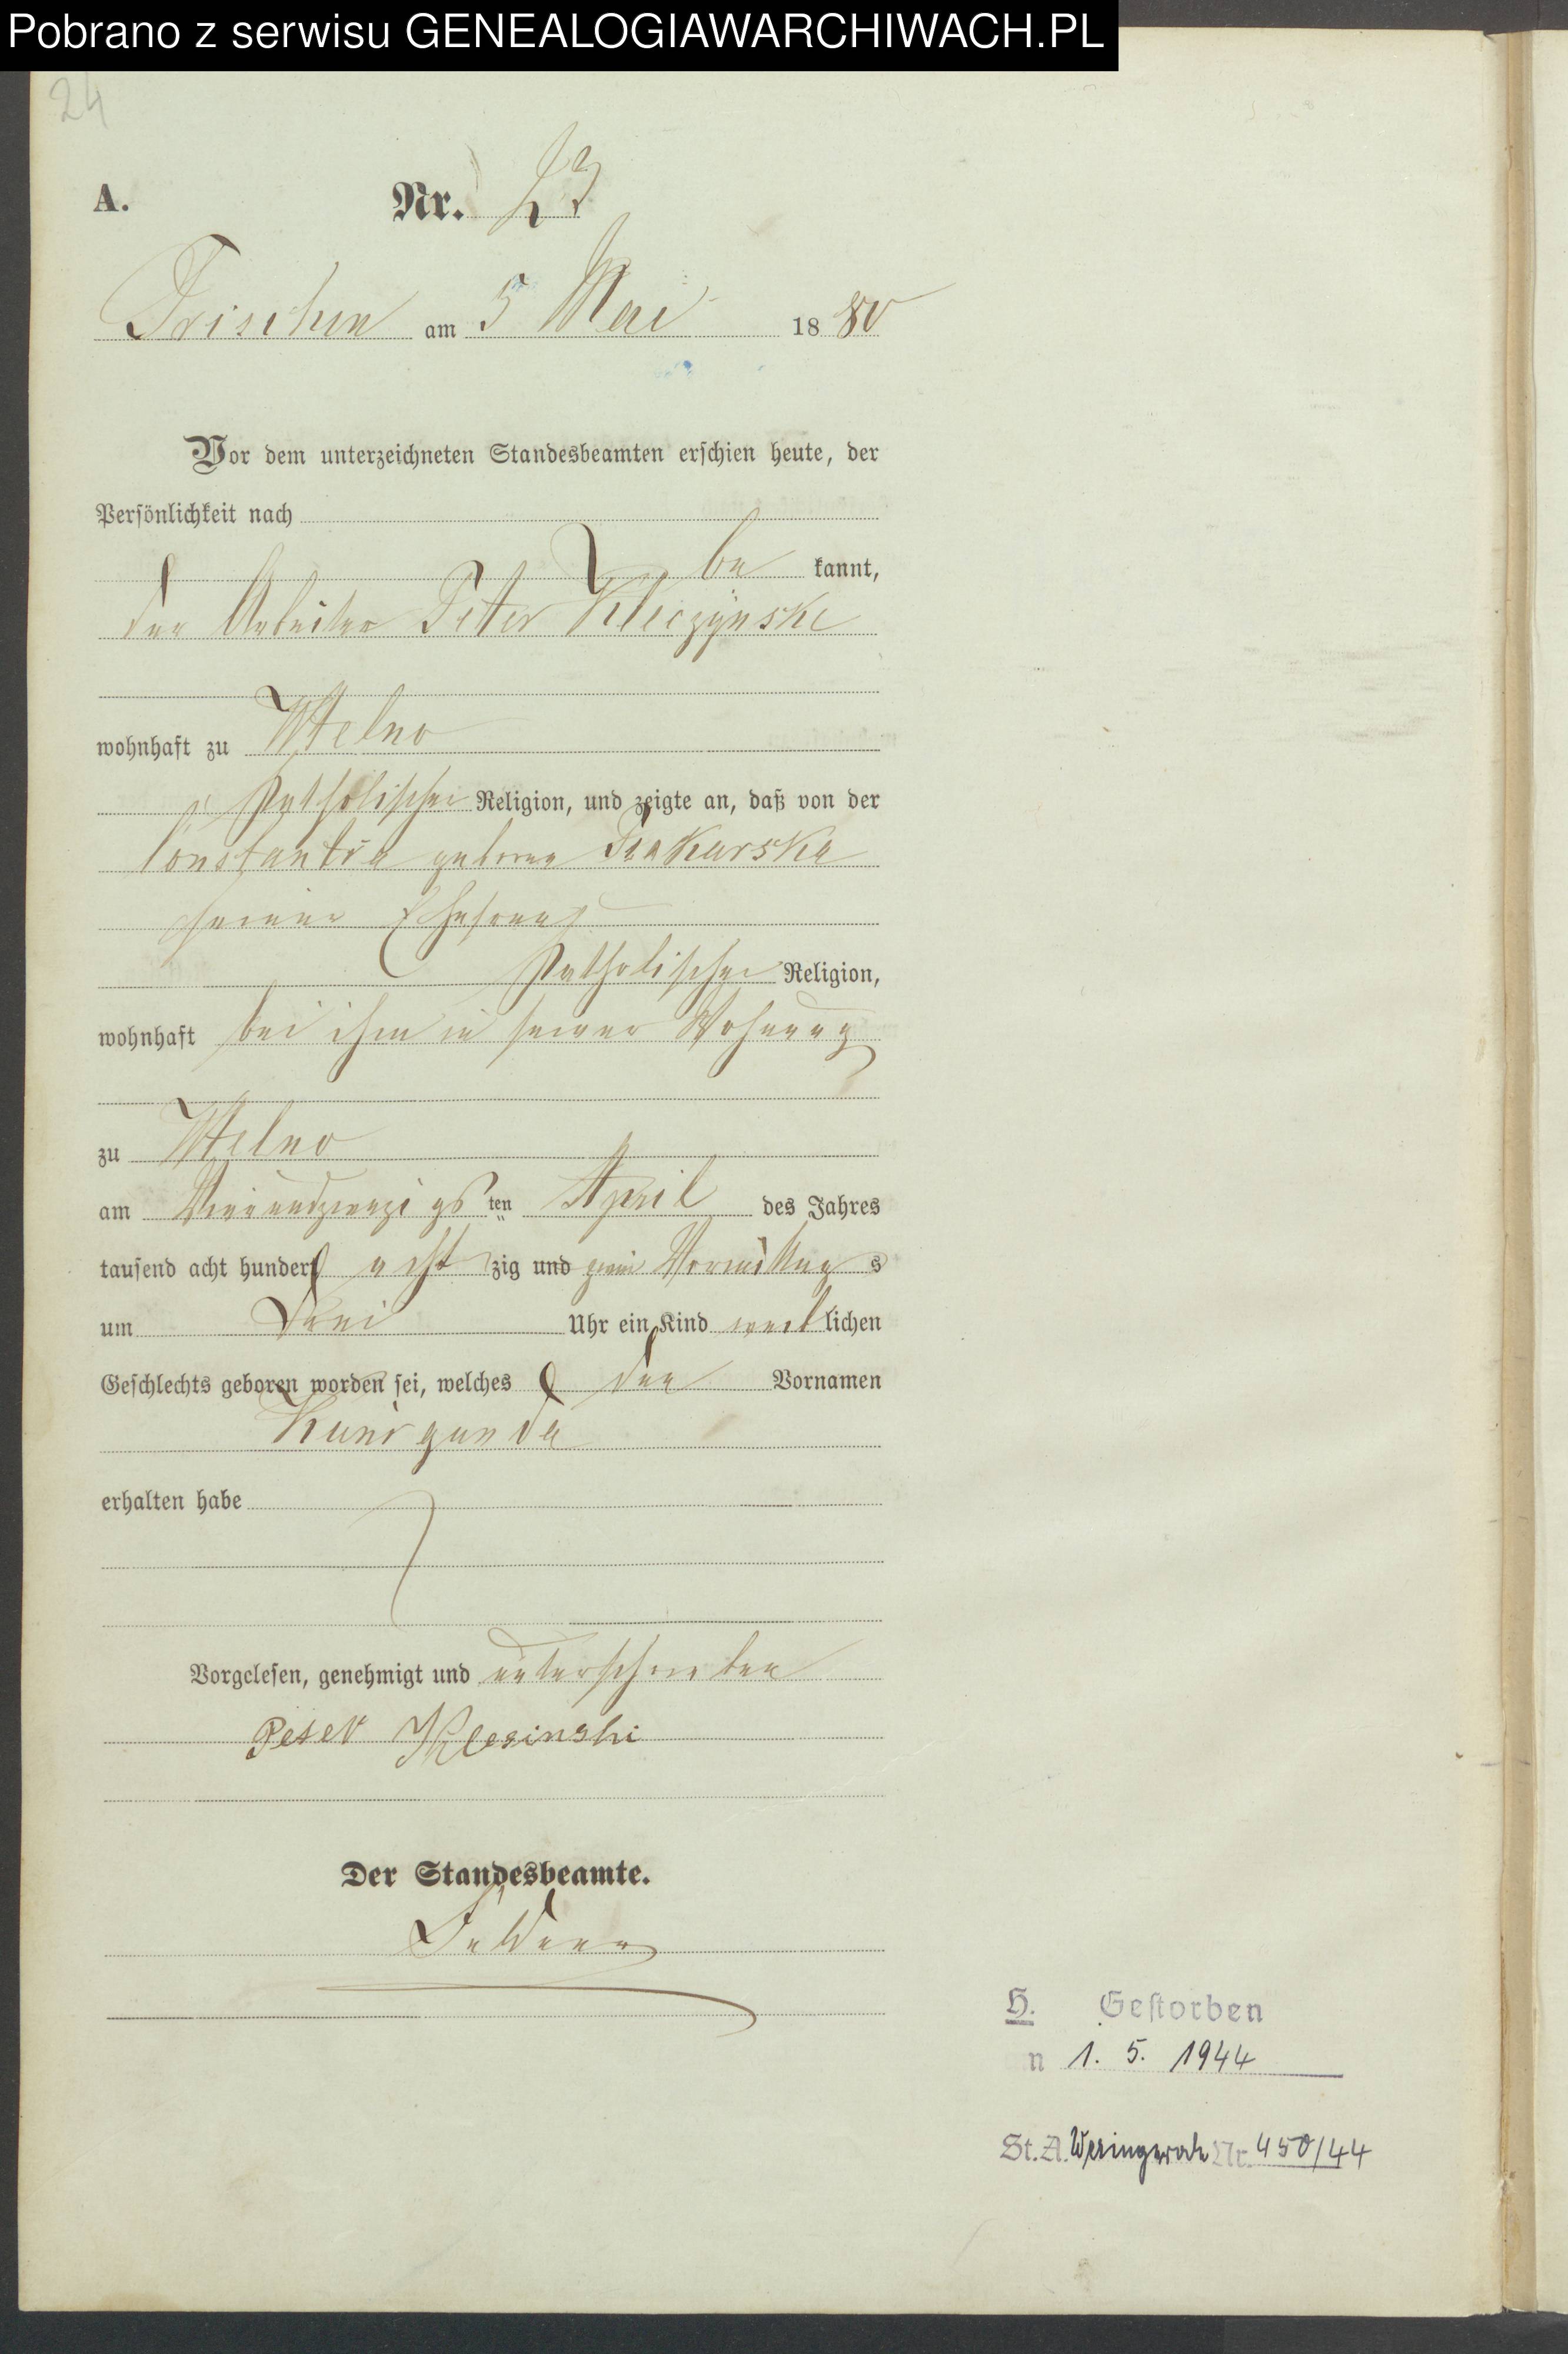 Pobrano z serwisu GENEALOGIAWARCHIWACH.PL
24
A. Nr. 23
Trischen am 5 Mai 1880
Vor dem unterzeichneten Standesbeamten erschien heute, der
Persönlichkeit nach
be kannt,
der Arbeiter Peter Kleczynski
wohnhaft zu Welno
katholischer Religion, und zeigte an, daß von der
Constantia geborne
seiner Ehefrau
katholischer Religion,
wohnhaft bei ihm in seiner Wohnung
zu Welno
am ten April des Jahres
tausend acht hundert acht zig und Vormittags
um drei Uhr ein Kind weiblichen
Geschlechts geboren worden sei, welches den Vornamen
Kunigunda
erhalten habe
Vorgelesen, genehmigt und unterschrieben
Peter Klesinski
Der Standesbeamte.
H. Gestorben
n 1. 5. 1944
St. A. Nr. 450/44